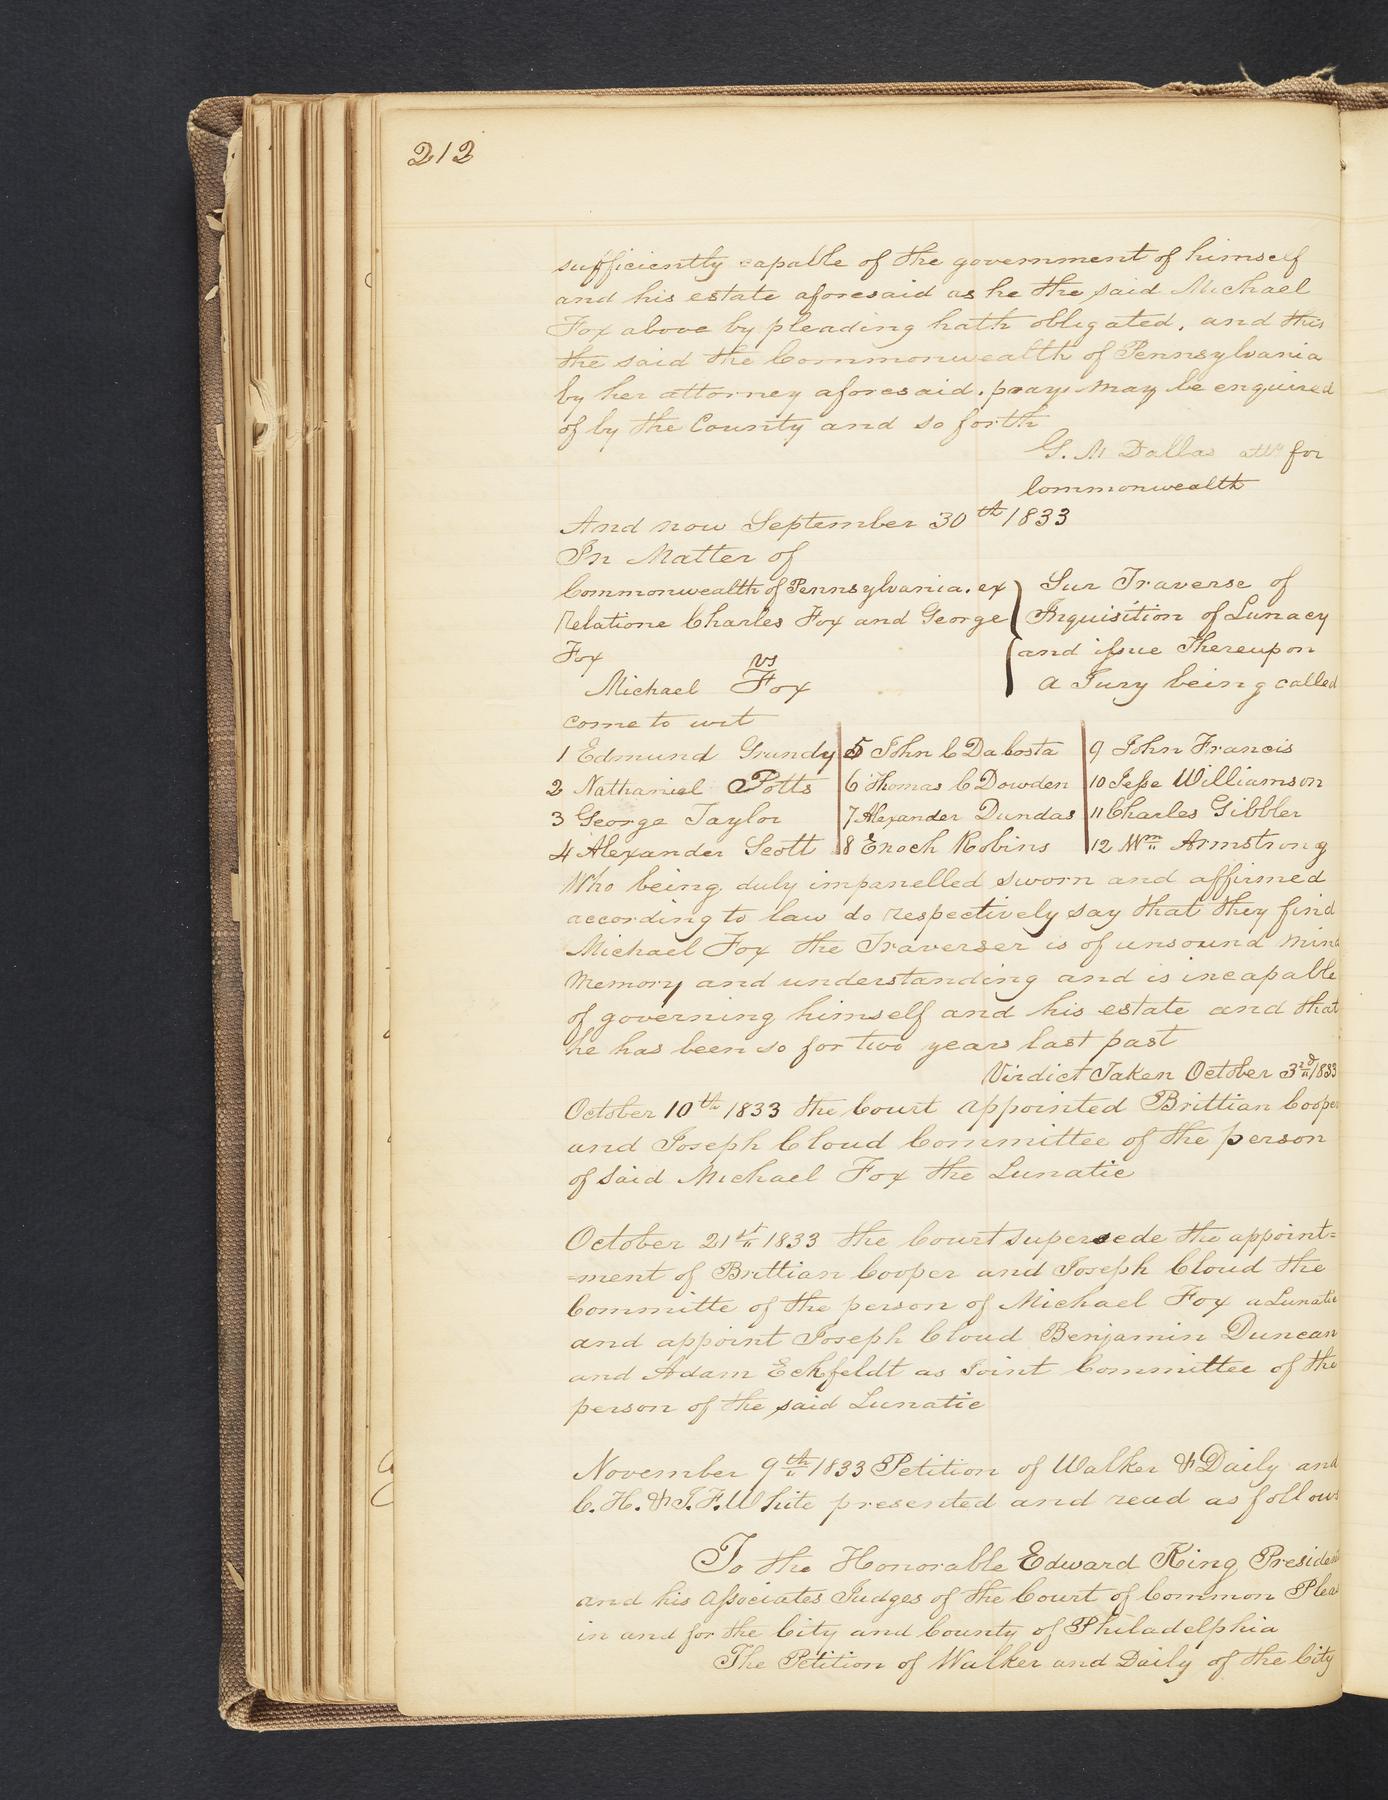 212
sufficiently capable of the government of himself
and his estate aforesaid as he the said Michael
Fox above by pleading hath obligated, and this
the said the Commonwealth of Pennsylvania
by her attorney aforesaid. prays may be enquired
of by the County and so forth
G. M Dallas atty for
Commonwealth
And now September 30th 1833
In Matter of
Commonwealth of Pennsylvania. ex } Sur Traverse of
Relatione Charles Fox and George Inquisition of Lunacy
Fox and issue Thereupon
vs
Michael Fox a Jury being called
come to wit
1 Edmund Grundy 5 John C Dacosta 9 John Francis
2 Nathaniel Potts 6 Thomas C Dowden 10 Jesse Williamson
3 George Taylor 7 Alexander Dundas 11 Charles Gibbler
4 Alexander Scott 8 Enoch Robins 12 Wm Armstrong
Who being duly impanelled sworn and affirmed
according to law do respectively say that they find
Michael Fox the Traverser is of unsound mind
memory and understanding and is incapable
of governing himself and his estate and that
he has been so for two years last past
Virdict Taken October 3rd 1833
October 10th 1833 the Court appointed Brittian Cooper
and Joseph Cloud Committee of the person
of said Michael Fox the Lunatic
October 21st 1833 the Court supersede the appoint=
=ment of Brittian Cooper and Joseph Cloud the
Committe of the person of Michael Fox a Lunatic
and appoint Joseph Cloud Benjamin Duncan
and Adam Eckfeldt as Joint Committee of the
person of the said Lunatic
November 9th 1833 Petition of Walker & Daily and
C. H. & J. F. White presented and read as follows
To the Honorable Edward King President
and his associates Judges of the Court of Common Pleas
in and for the City and County of Philadelphia
The Petition of Walker and Daily of the City